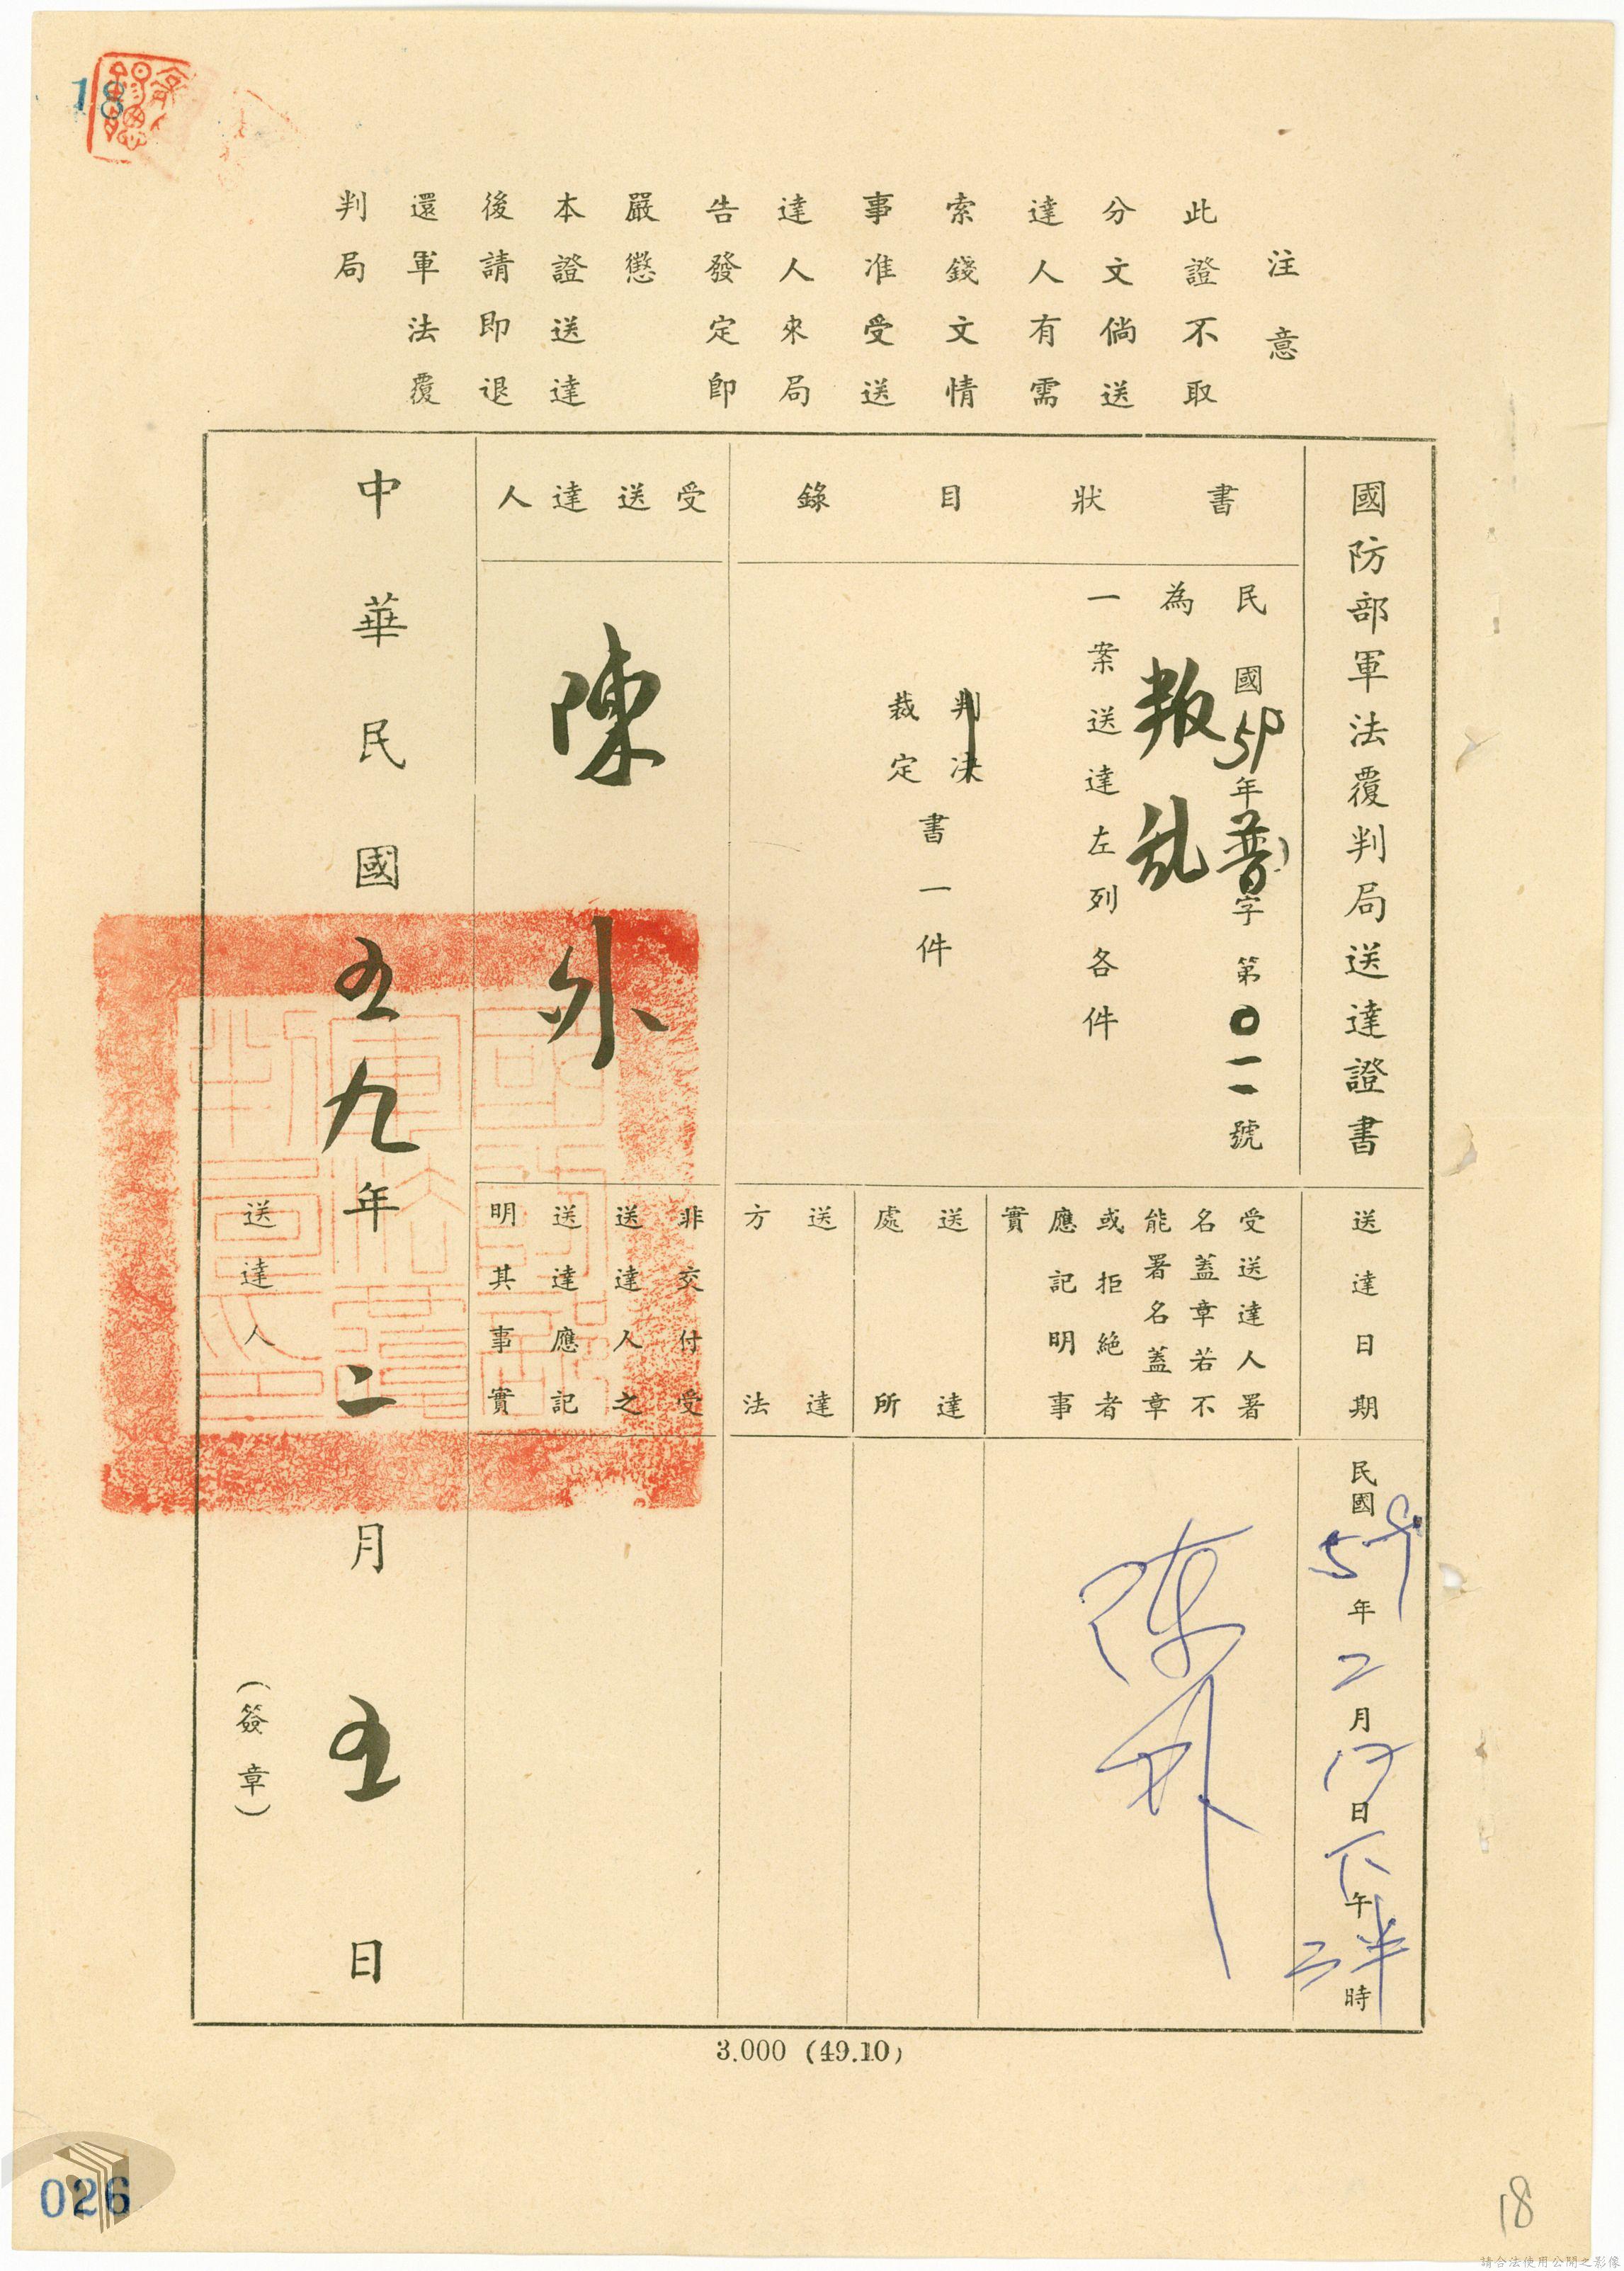 18
注意
此證不取
分文倘送
達人有需
索錢文情
事准受送
達人來局
告發定即
嚴懲
本證送達
後請即退
還軍法覆
判局
國防部軍法覆判局送達證書
書狀目錄
民國59年普字第〇一一號
為叛乱
一案送達左列各件
判决
裁定
書一件
受送達人
陳外
送達日期
民國59年二月17日下午二半時
受送達人署
名蓋章若不
能署名蓋章
或拒絕者
應記明事
實
陳外
送達
處所
送達
方法
非交付受
送達人之
送達應記
明其事實
中華民國五九年二月五日
送達人
(簽章)
3.000 (49.10)
026
18
請合法使用公開之影像